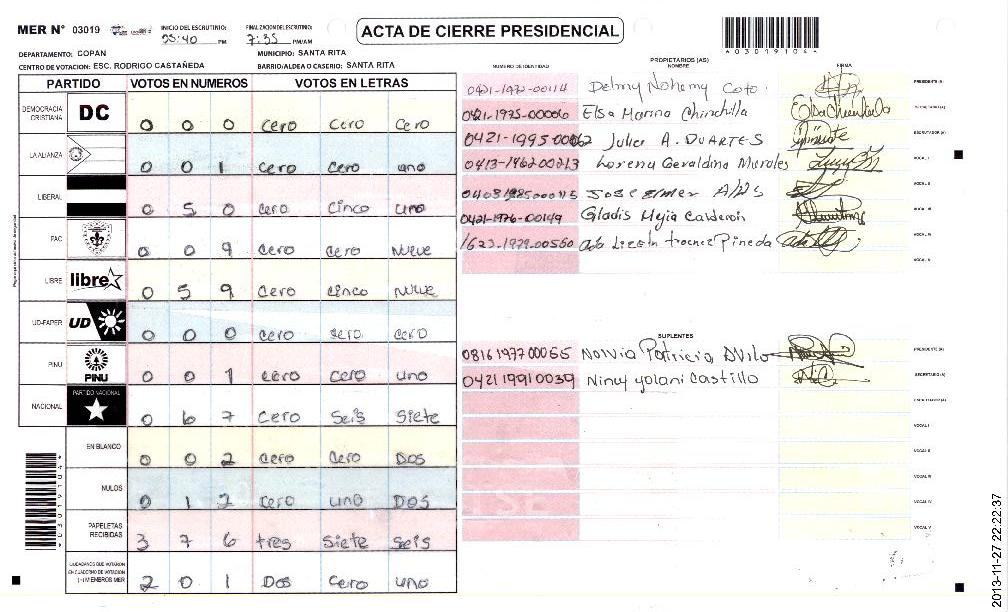 MER N° 03019
INICIO DEL ESCRUTINIO:
PM
FINALIZACION DEL ESCRUTINIO:
7:35 PM/AM
ACTA DE CIERRE PRESIDENCIAL
*03019104*
DEPARTAMENTO: COPAN
MUNICIPIO: SANTA RITA
CENTRO DE VOTACION: ESC. RODRIGO CASTAÑEDA
BARRIO/ALDEA O CASERIO: SANTA RITA
PARTIDO VOTOS EN NUMEROS VOTOS EN LETRAS
DEMOCRACIA CRISTIANA DC 0 0 0 cero cero cero
LA ALIANZA 0 0 1 cero cero uno
LIBERAL 0 5 0 cero cinco uno
PAC 0 0 9 cero cero nueve
LIBRE libre 0 5 9 cero cinco nueve
UD-FAPER UD 0 0 0 cero cero cero
PINU PINU 0 0 1 cero cero uno
NACIONAL PARTIDO NACIONAL 0 6 7 cero seis siete
EN BLANCO 0 0 2 cero cero Dos
NULOS 0 1 2 cero uno DOS
PAPELETAS RECIBIDAS 3 7 6 tres siete seis
CIUDADANOS QUE VOTARON EN CUADERNO DE VOTACION (+) MIEMBROS MER 2 0 1 Dos cero uno
*03019104*
PROPIETARIOS (AS)
NUMERO DE IDENTIDAD NOMBRE FIRMA
0421-1972-00114 Delmy Nohemy Coto PRESIDENTE (A)
0421-1975-00006 Elsa Marina Chinchilla SECRETARIO (A)
0421-1995-00062 Julia A. DUARTES ESCRUTADOR (A)
0413-1962-00213 Lorena Geraldina Morales VOCAL I
Jose Elmer VOCAL II
0421-1976-00149 Gladis Mejia Calderon VOCAL III
1623-1979-00560 Pineda VOCAL IV
VOCAL V
SUPLENTES
0816 1977 00065 Patricia PRESIDENTE (A)
0421 1991 0039 Nincy yolani Castillo SECRETARIO (A)
ESCRUTADOR (A)
VOCAL I
VOCAL II
VOCAL III
VOCAL IV
VOCAL V
2013-11-27 22:22:37